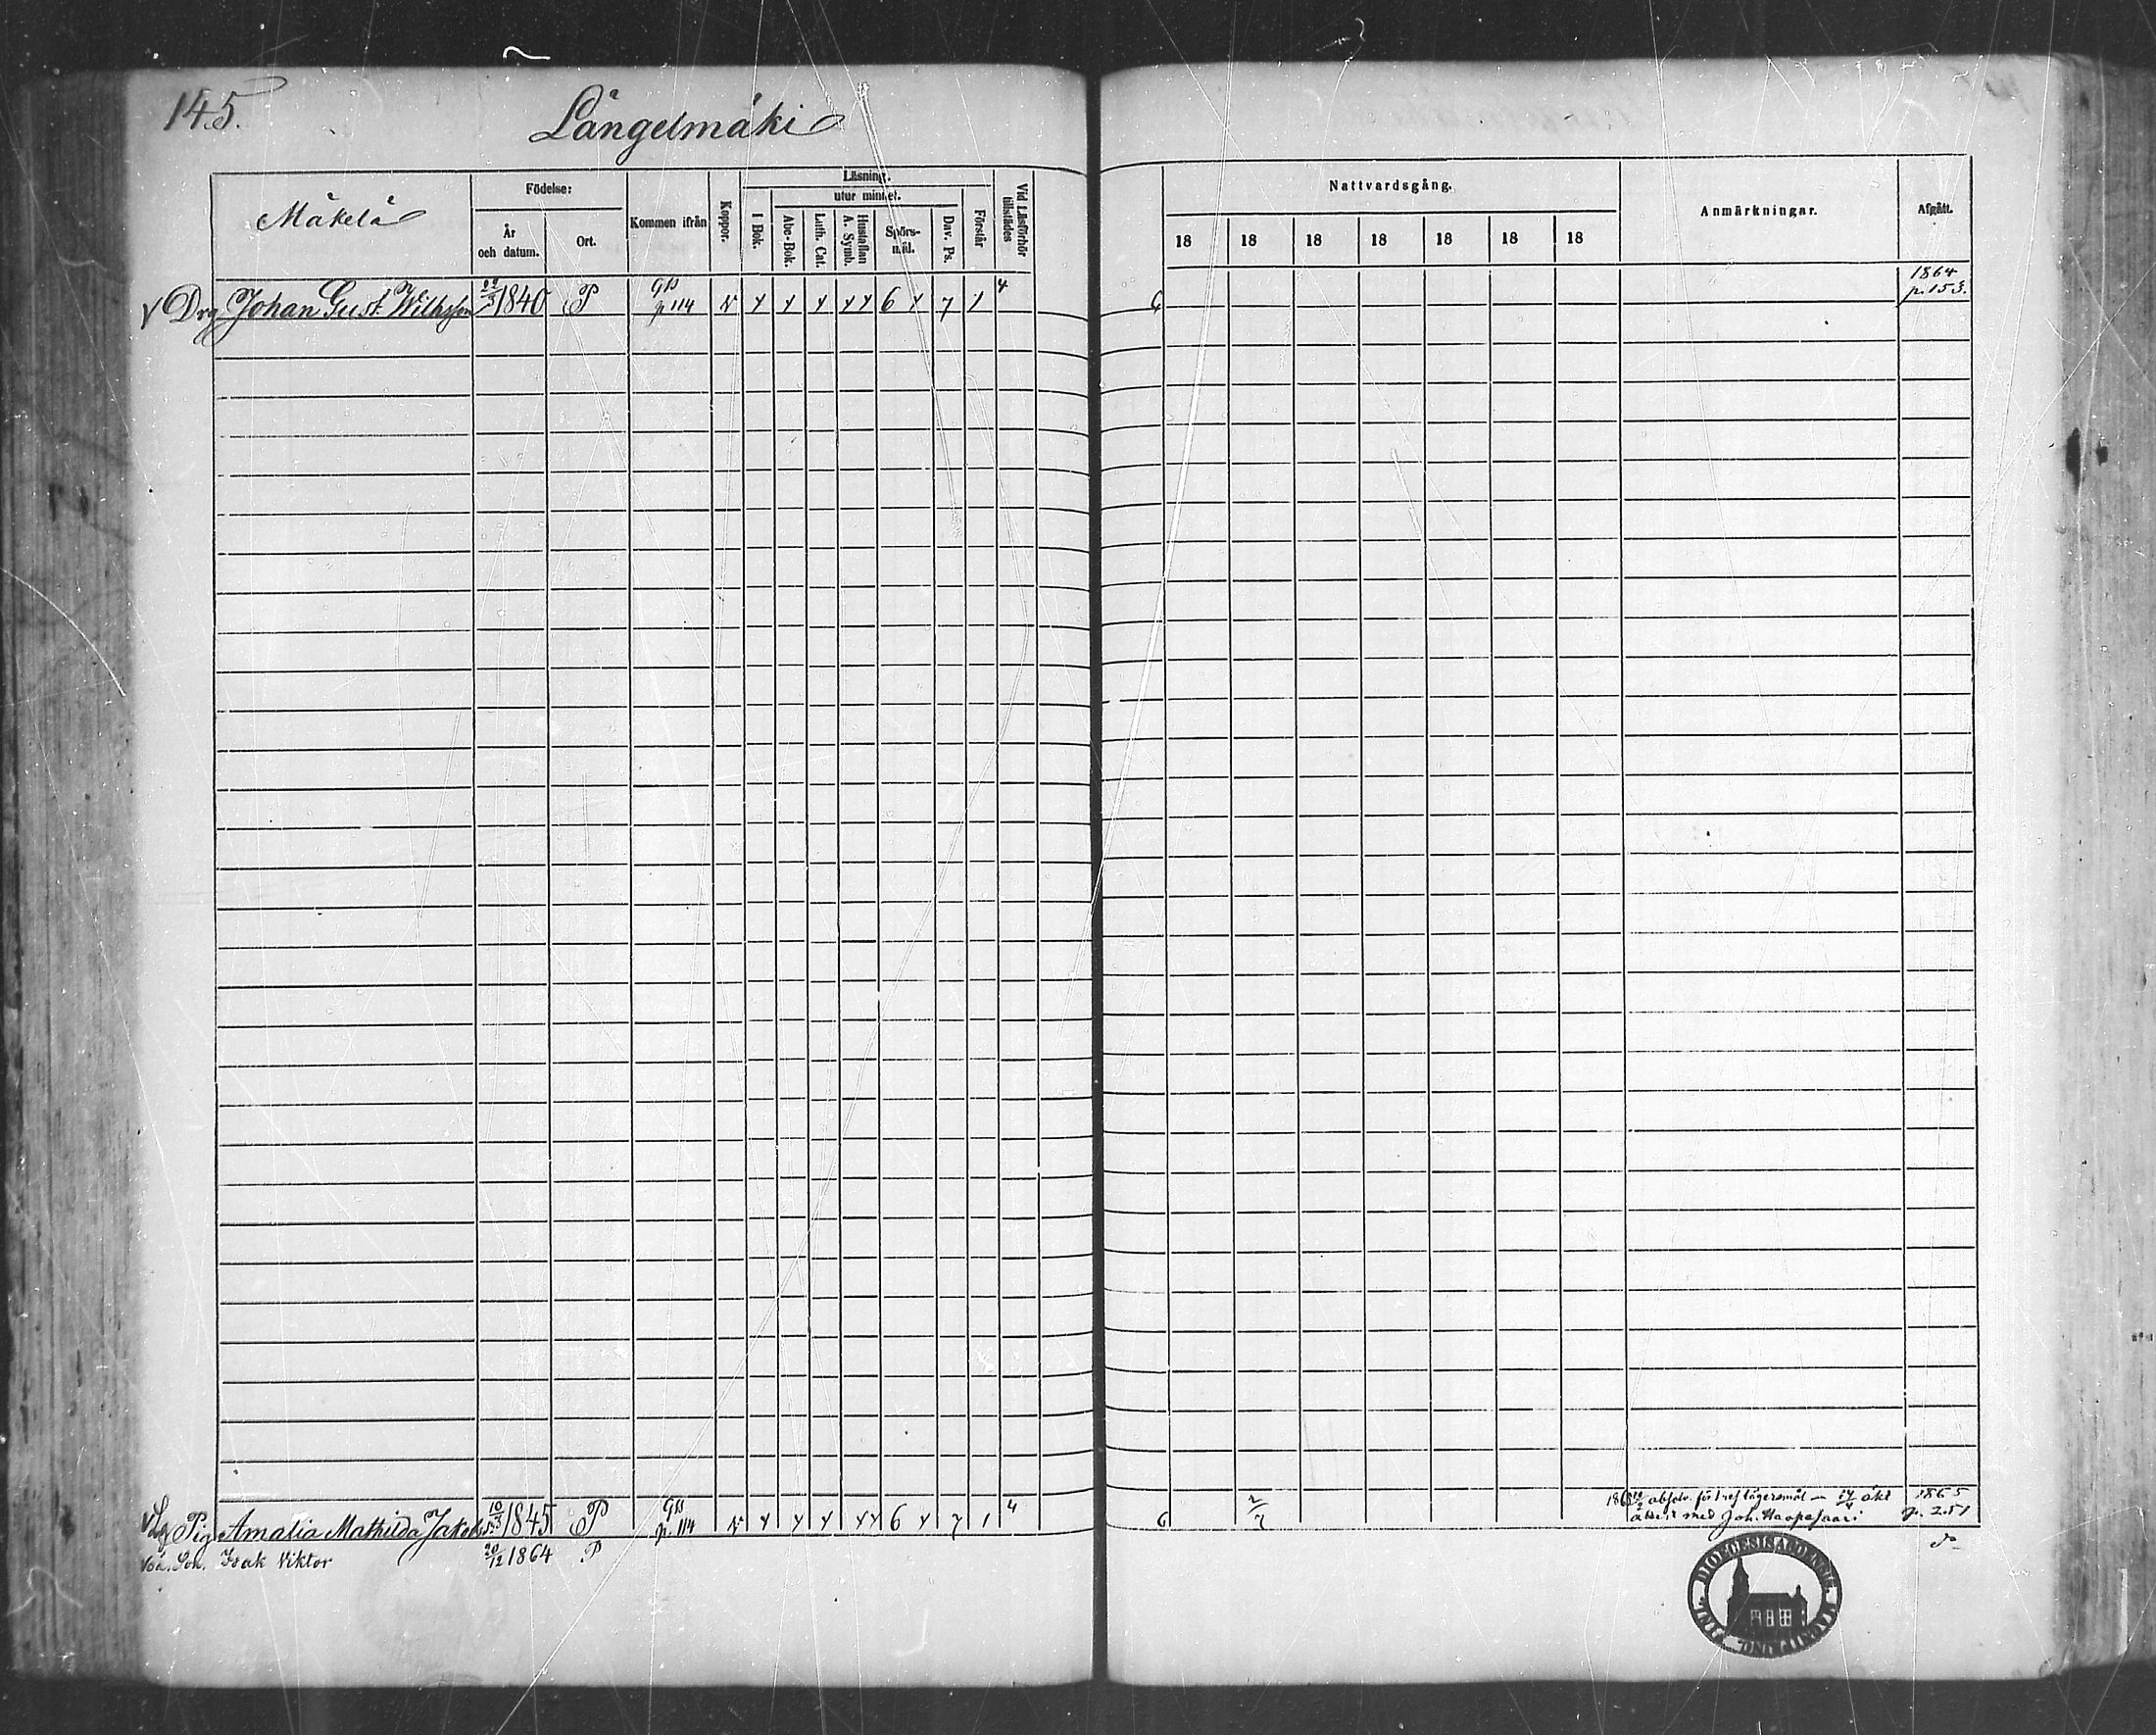 145.
Långelmäki
Mäkelä
Födelse:
År och datum.
Ort.
Kommen ifrån
Koppor.
Läsning.
utur minnet.
I Bok.
Abc-Bok.
Luth. Cat.
Hustaflan A. Symb.
Spörs-mål.
Dav. Ps.
Förstår
Vid Läsförhör tillstädes
Nattvardsgång.
18 18 18 18 18 18 18
Anmärkningar.
Afgått.
Drg Johan Gust. Wilhsson 1840 P p 114 6 7 1 4 6 1864 p. 153.
Pig Amalia Mathilda Jakobs 1845 P p. 114 6 7 1 4 6 2/7 absolv. för 1 resa lägersmål med Joh. Haapasaari 1865 p. 251
oä. Son. Isak Viktor 20/12 1864 P